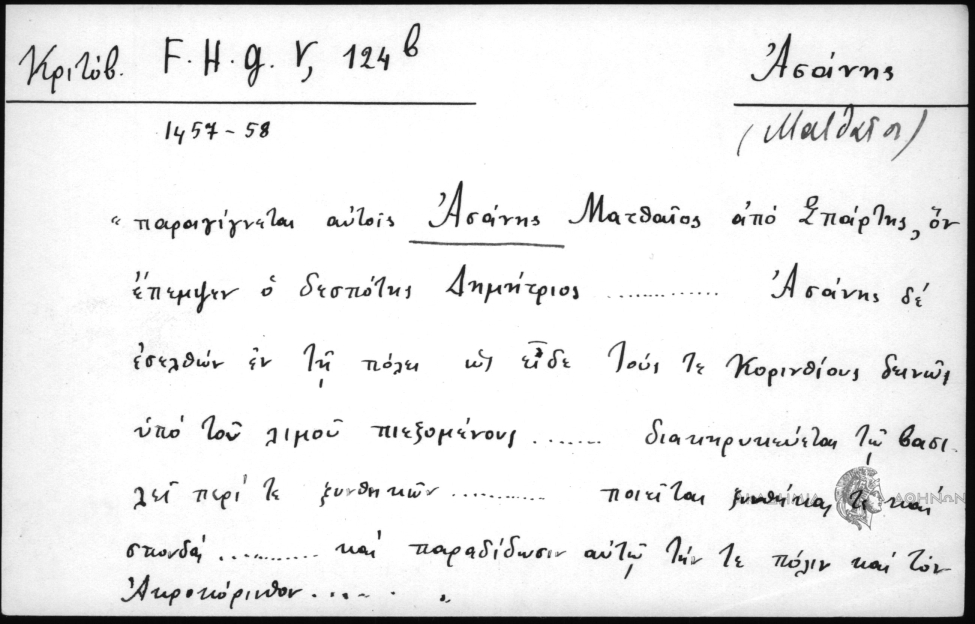 Κριτόβ. F. H. g. V, 124b
Ἀσάνης
1457-58
(Ματθαῖος)
“ παραγίγνεται αὐτοῖς Ἀσάνης Ματθαῖος ἀπό Σπάρτης, ὅν
ἔπεμψεν ὁ δεσπότης Δημήτριος .............. Ἀσάνης δέ
ἐσελθών ἐν τῇ πόλει ὡς εἶδε τούς τε Κορινθίους δεινῶς
ὑπό τοῦ λιμοῦ πιεζομένους ........ διακηρυκεύεται τῷ βασι-
λεῖ περί τε ξυνθηκῶν .......... ποιεῖται ξυνθήκας τε καί
σπονδάς .......... καί παραδίδωσιν αὐτῷ τήν τε πόλιν καί τόν
Ἀκροκόρινθον ..... „
ΑΘΗΝΩΝ